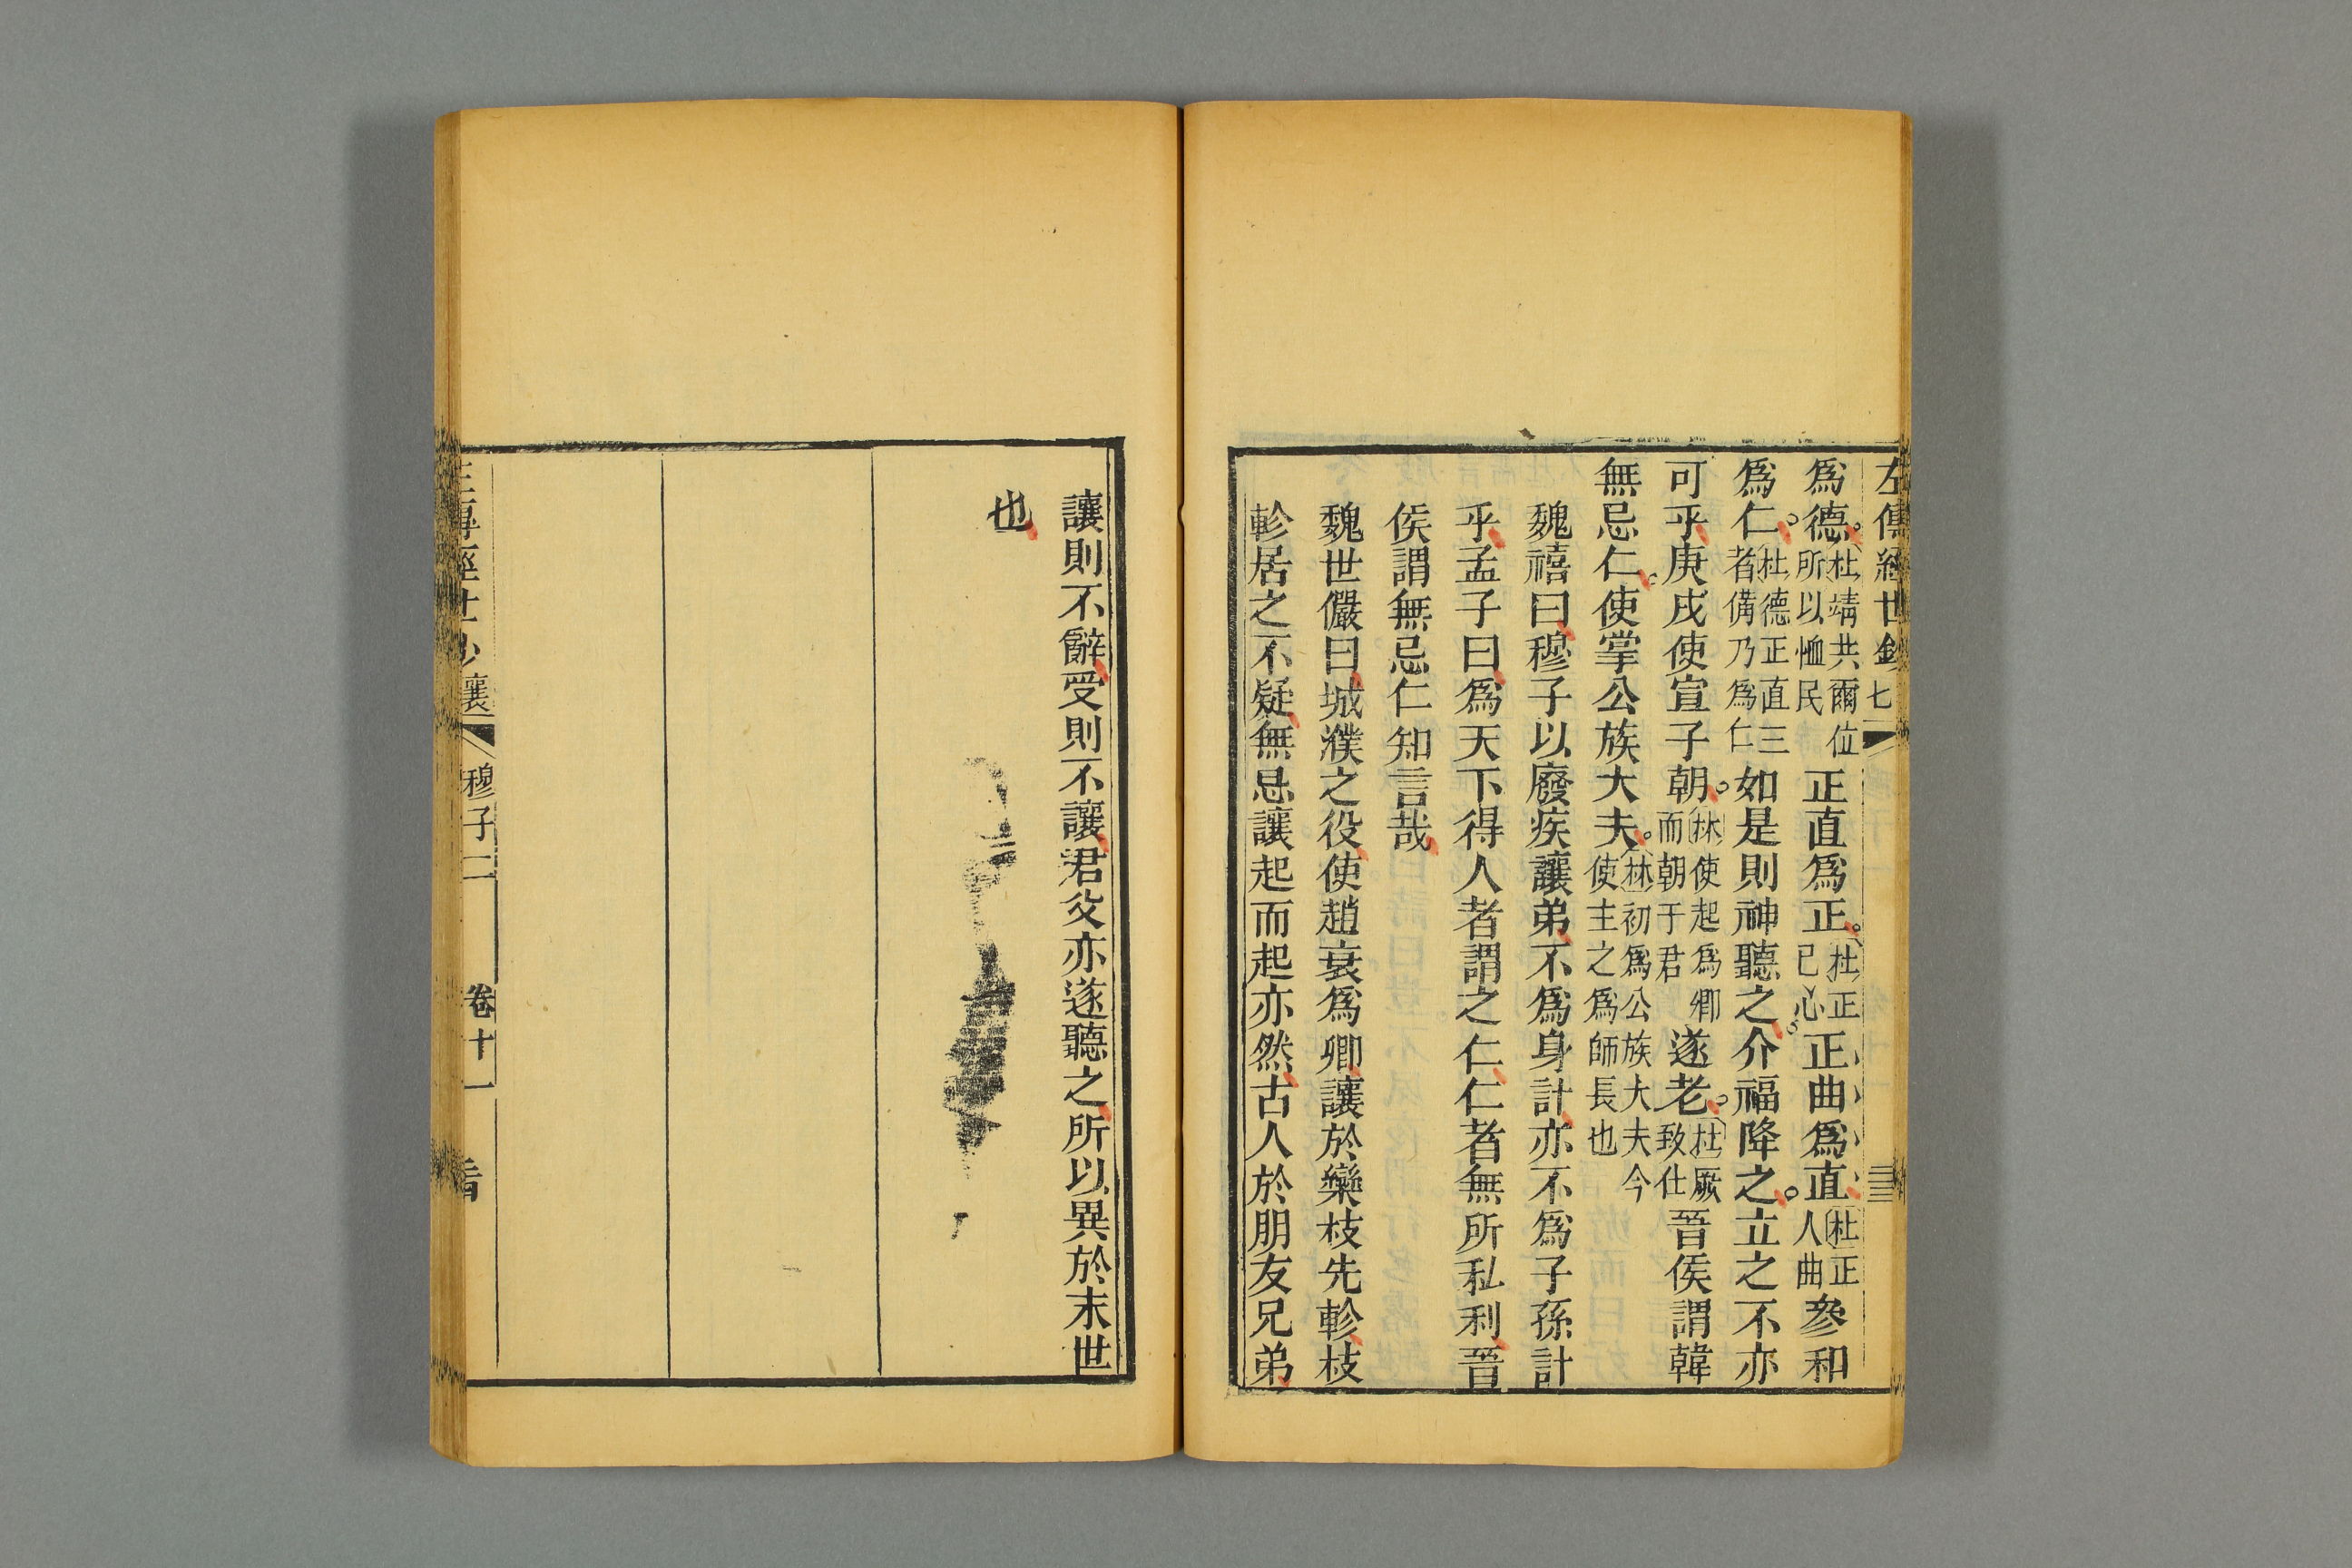 左傳經世鈔 七
爲德杜靖共爾位所以恤民正直爲正杜正己心正曲爲直杜正人曲參和
爲仁杜德正直三者備乃爲仁如是則神聽之介福降之立之不亦
可乎庚戌使宣子朝林使起爲卿而朝于君遂老杜厥致仕晉侯謂韓
無忌仁使掌公族大夫林初爲公族大夫今使主之爲師長也
魏禧曰穆子以廢疾讓弟不爲身計亦不爲子孫計
乎孟子曰爲天下得人者謂之仁仁者無所私利晉
侯謂無忌仁知言哉
魏世儼曰城濮之役使趙衰爲卿讓於欒枝先軫枝
軫居之不疑無忌讓起而起亦然古人於朋友兄弟
讓則不辭受則不讓君父亦遂聽之所以異於末世
也
襄 穆子二 卷十一